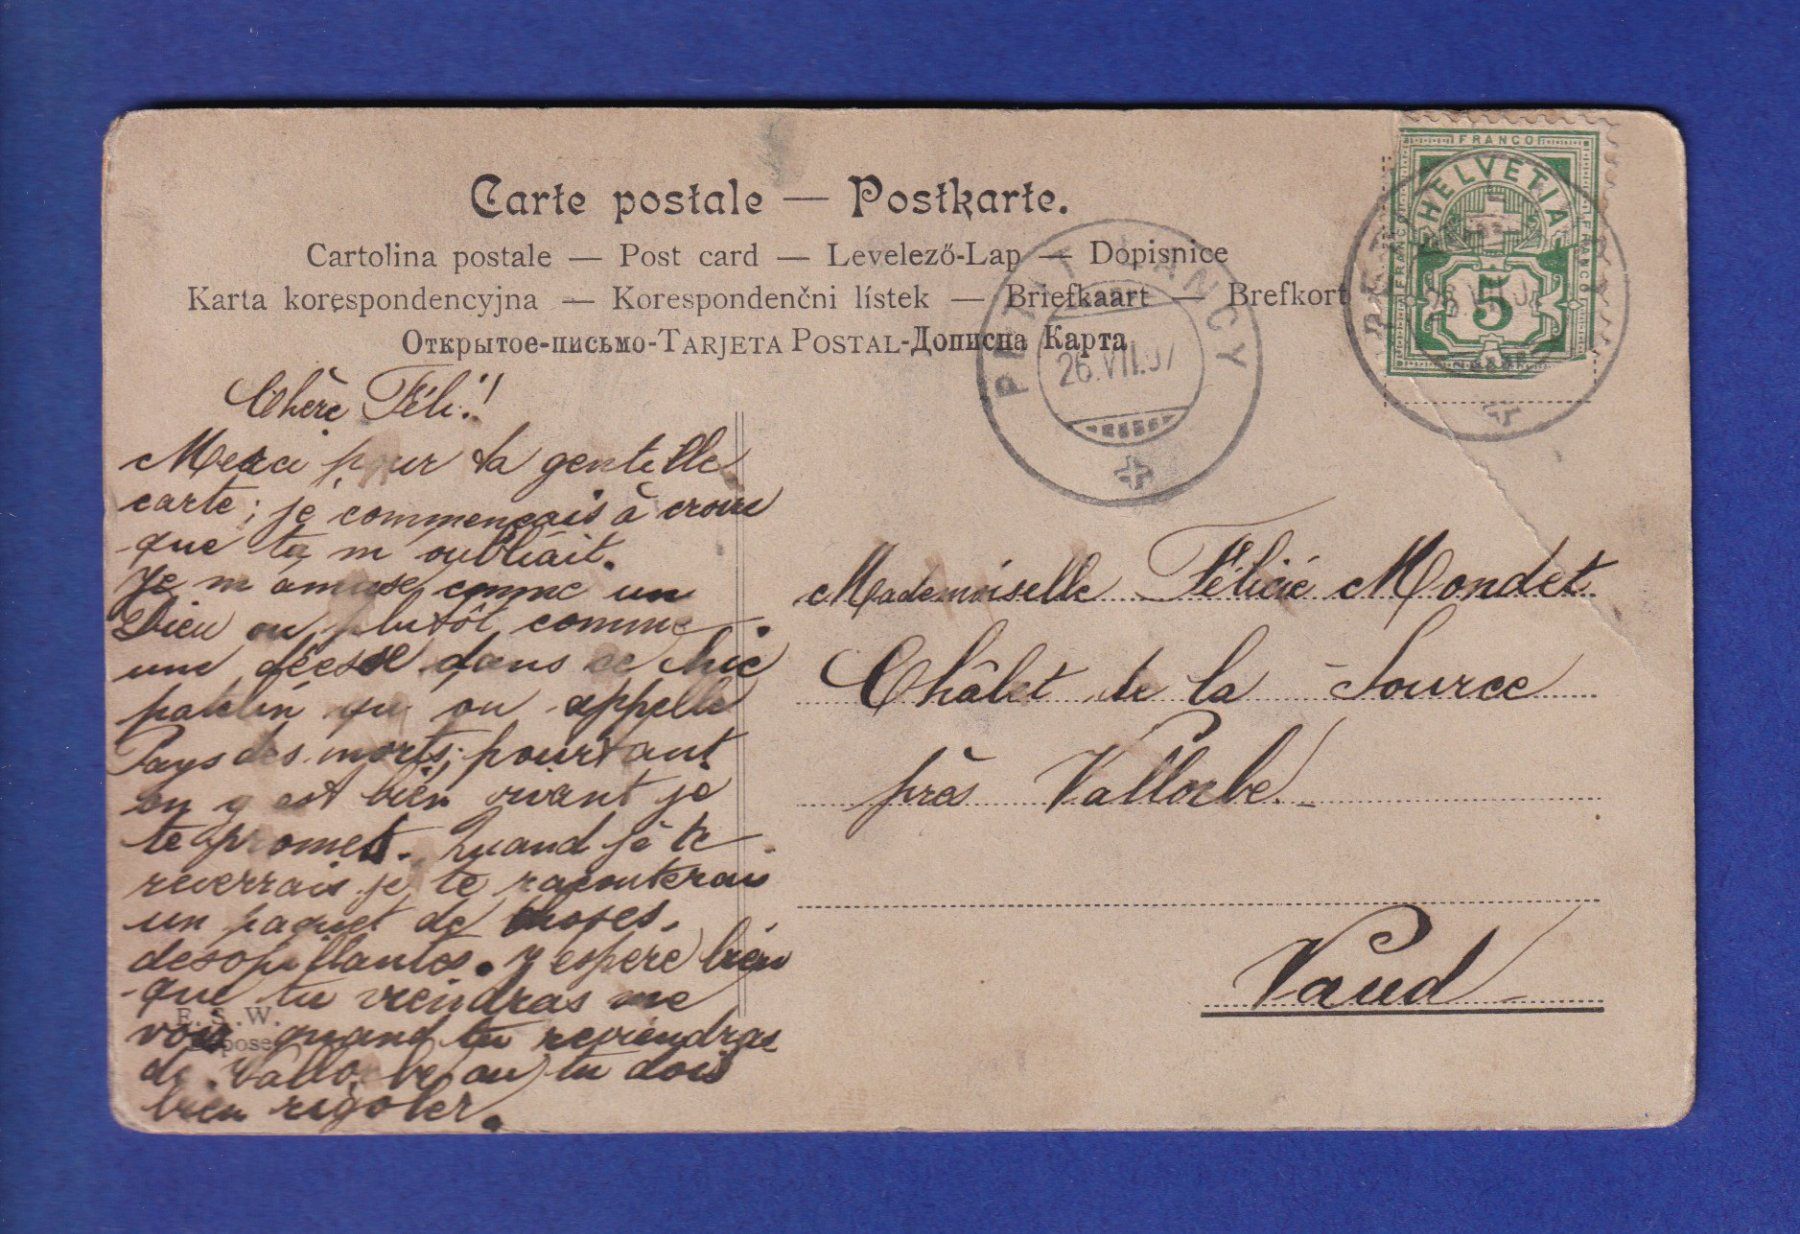 Carte postale — Postkarte.
Cartolina postale — Post card — Levelező-Lap — Dopisnice
Karta korespondencyjna — Korespondenčni lístek — Briefkaart — Brefkort
Открытое-письмо-TARJETA POSTAL-Дописна Карта
FRANCO
HELVETIA
FRANCO
FRANCO
5
PETIT LANCY
26.VII.07
Chère Féli.!
Merci pour ta gentille
carte; je commençais à croire
que tu m'oubliait.
Je m'amuse comme un
Dieu ou plutôt comme
une déesse dans ce chic
patelin qu'on appelle
Pays des morts; pourtant
on y est bien vivant je
te promet. Quand je te
reverrais je te raconterais
un paquet de choses
desopillantes. J'espère bien
que tu viendras me
voir quand tu reviendras
de Vallorbe où tu dois
bien rigoler.
E. S. W.
Déposé
Mademoiselle Félicie Mondet
Châlet de la Source
près Vallorbe.
Vaud